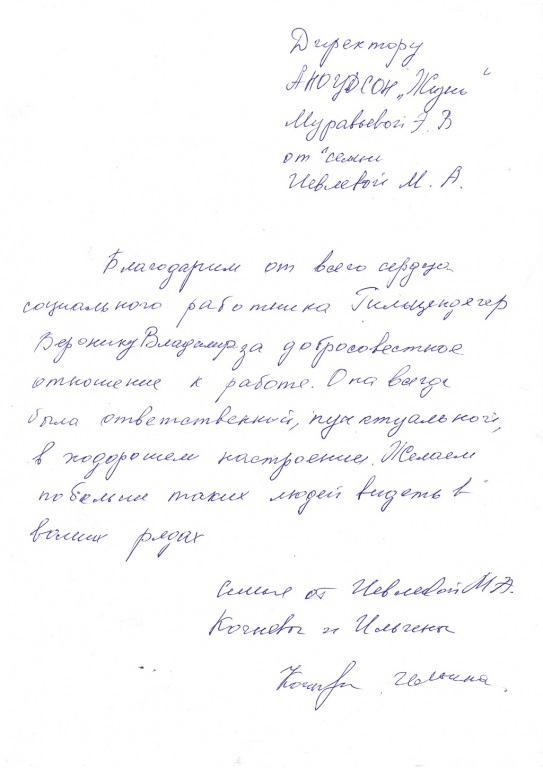 Директору
АНОУДСОН „Жизнь“
Муравьевой Э. В
от семьи
Иевлевой М. А.
Благодарим от всего сердца
социального работника Гильцендегер
Веронику Владимир за добросовестное
отношение к работе. Она всегда
была ответственной, пунктуальной,
в хорошем настроении. Желаем
побольше таких людей видеть в
ваших рядах
семья от Иевлевой М А.
Кочневы и